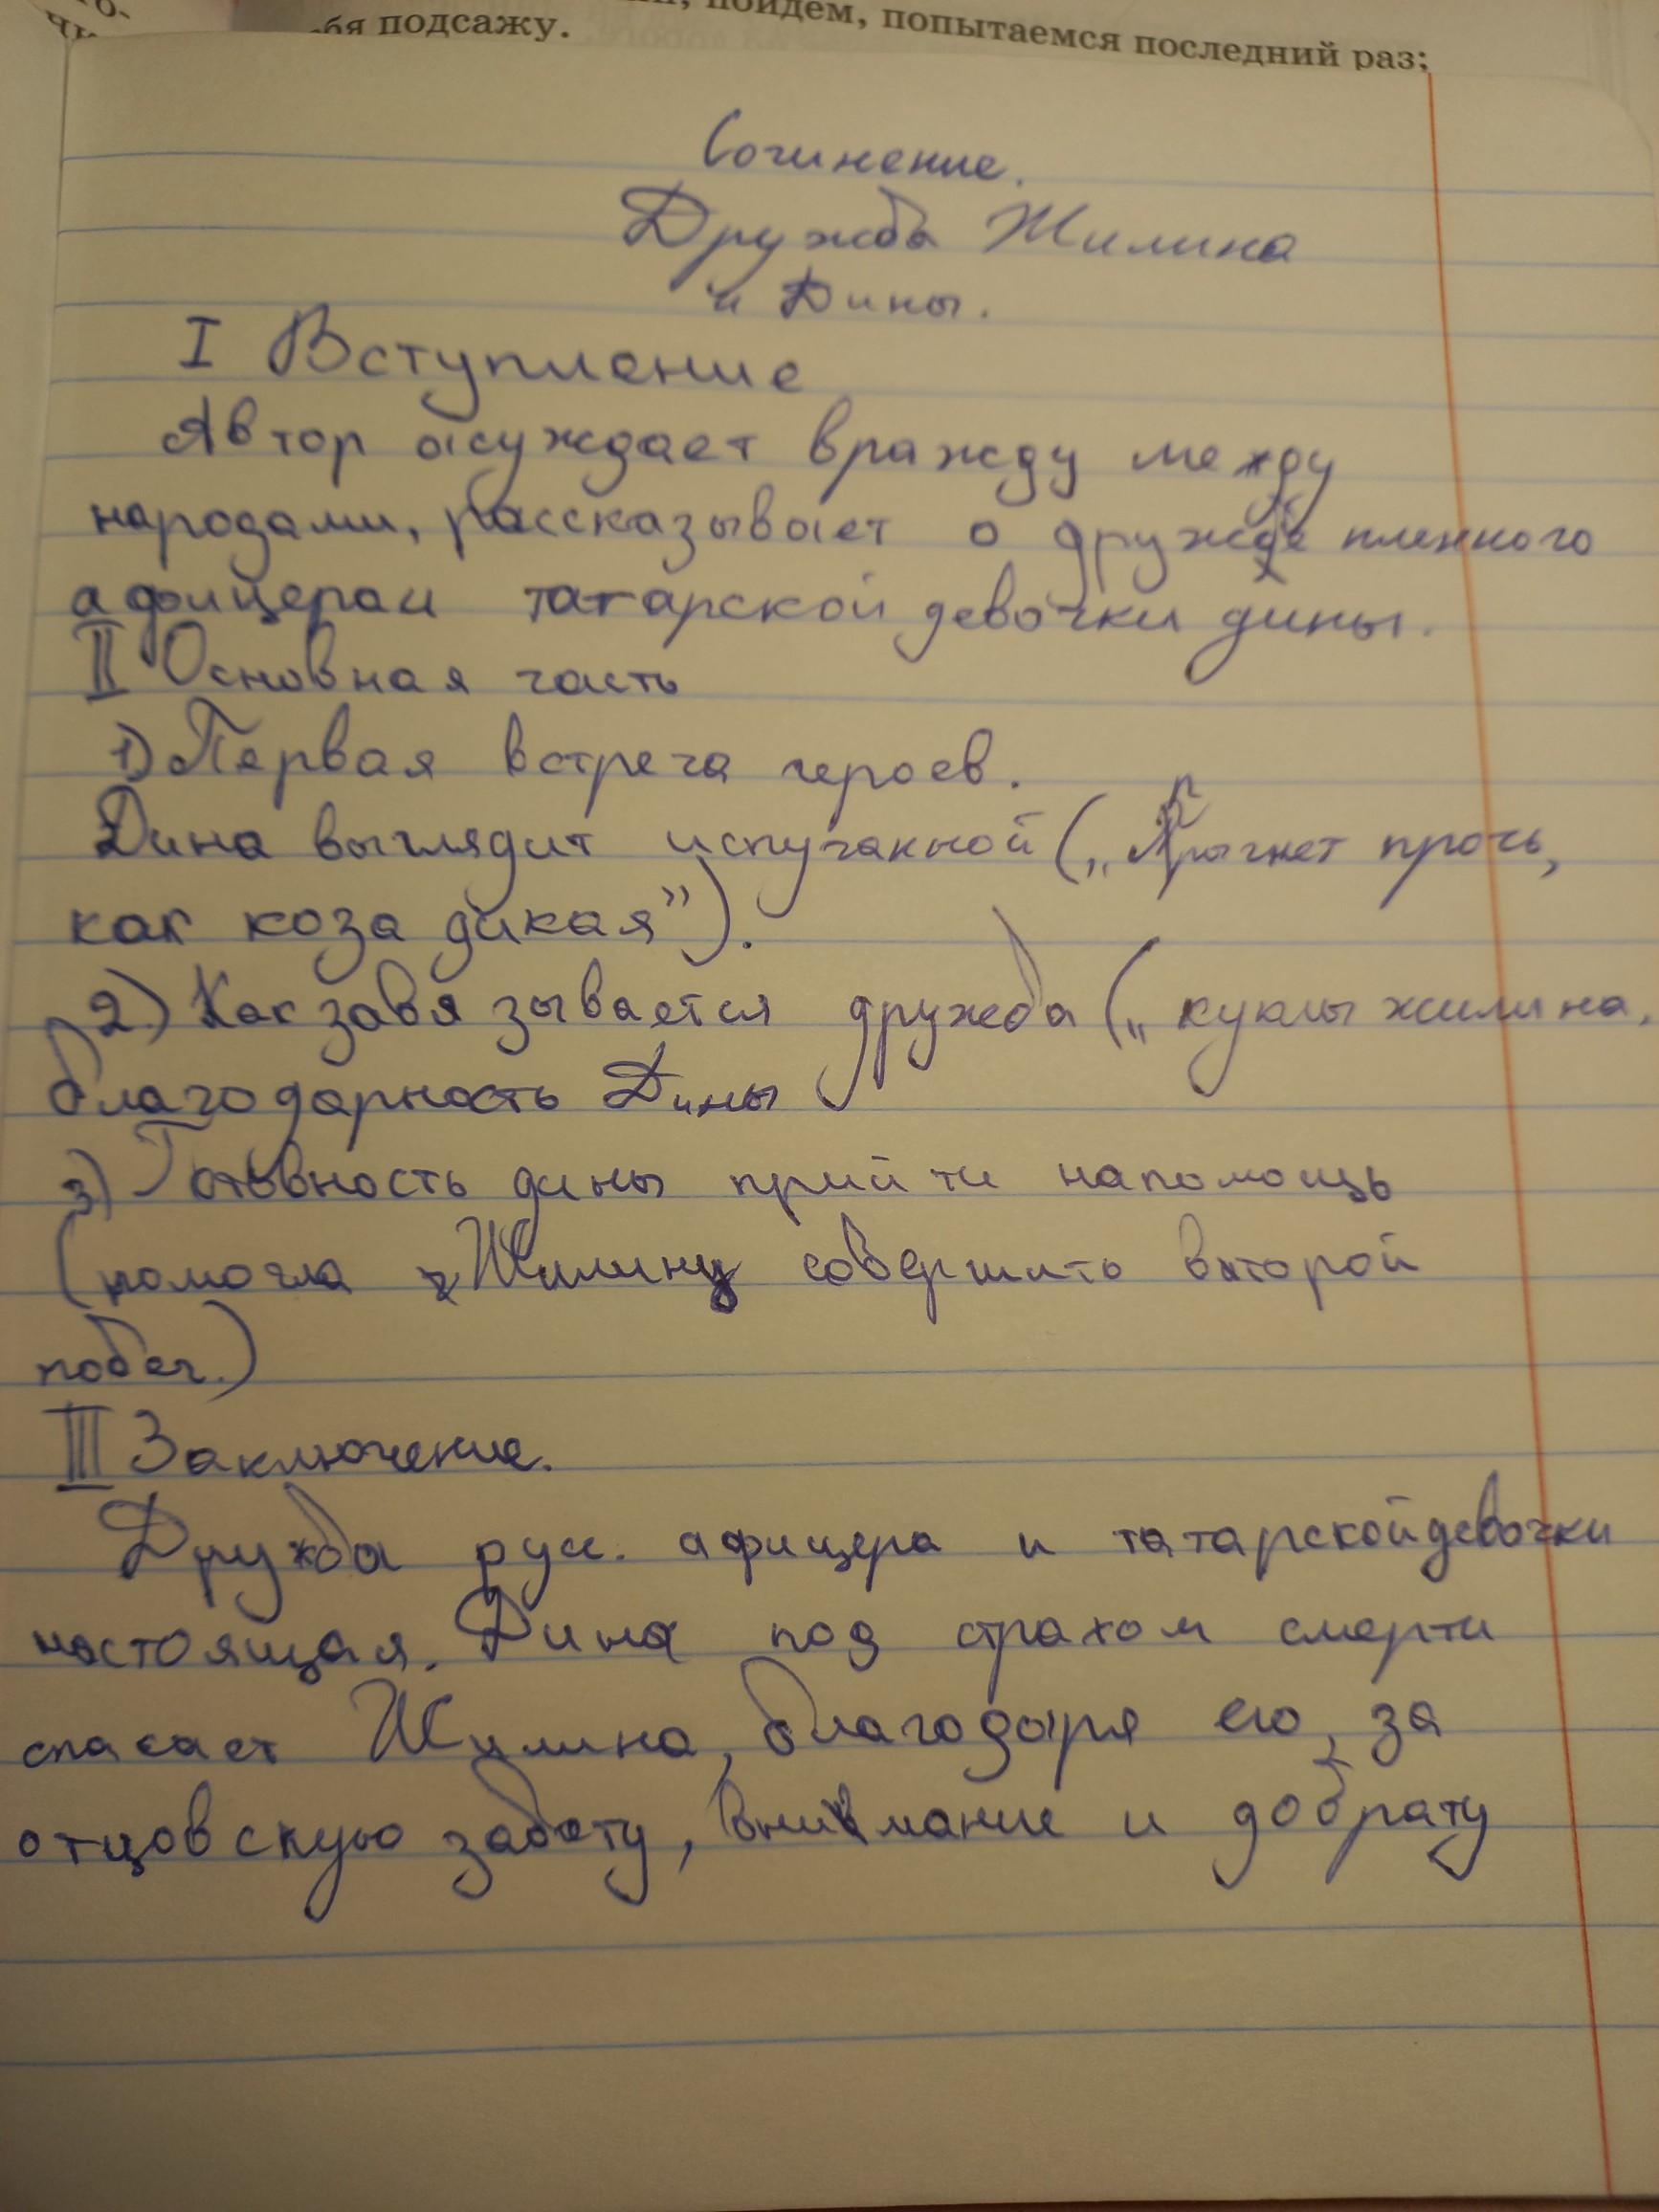 пойдем, попытаемся последний раз;
подсажу.
Сочинение.
Дружба Жилина
и Дины.
I Вступление
Автор осуждает вражду между
народами, рассказывает о дружбе пленного
афицераи татарской девочки дины.
II Основная часть
1) Первая встреча героев.
Дина выглядит испуганной („Прыгнет прочь,
как коза дикая”).
2) Как завязывается дружба („куклы жилина,
благодарность Дины
3) Готовность дины прийти напомощь
(помогла Жилину совершить второй
побег.)
III Заключение.
Дружба рус. афицера и татарскойдевочки
настоящая. Дина под страхом смерти
спасает Жилина, благодаря его, за
отцовскую заботу, внимание и доброту